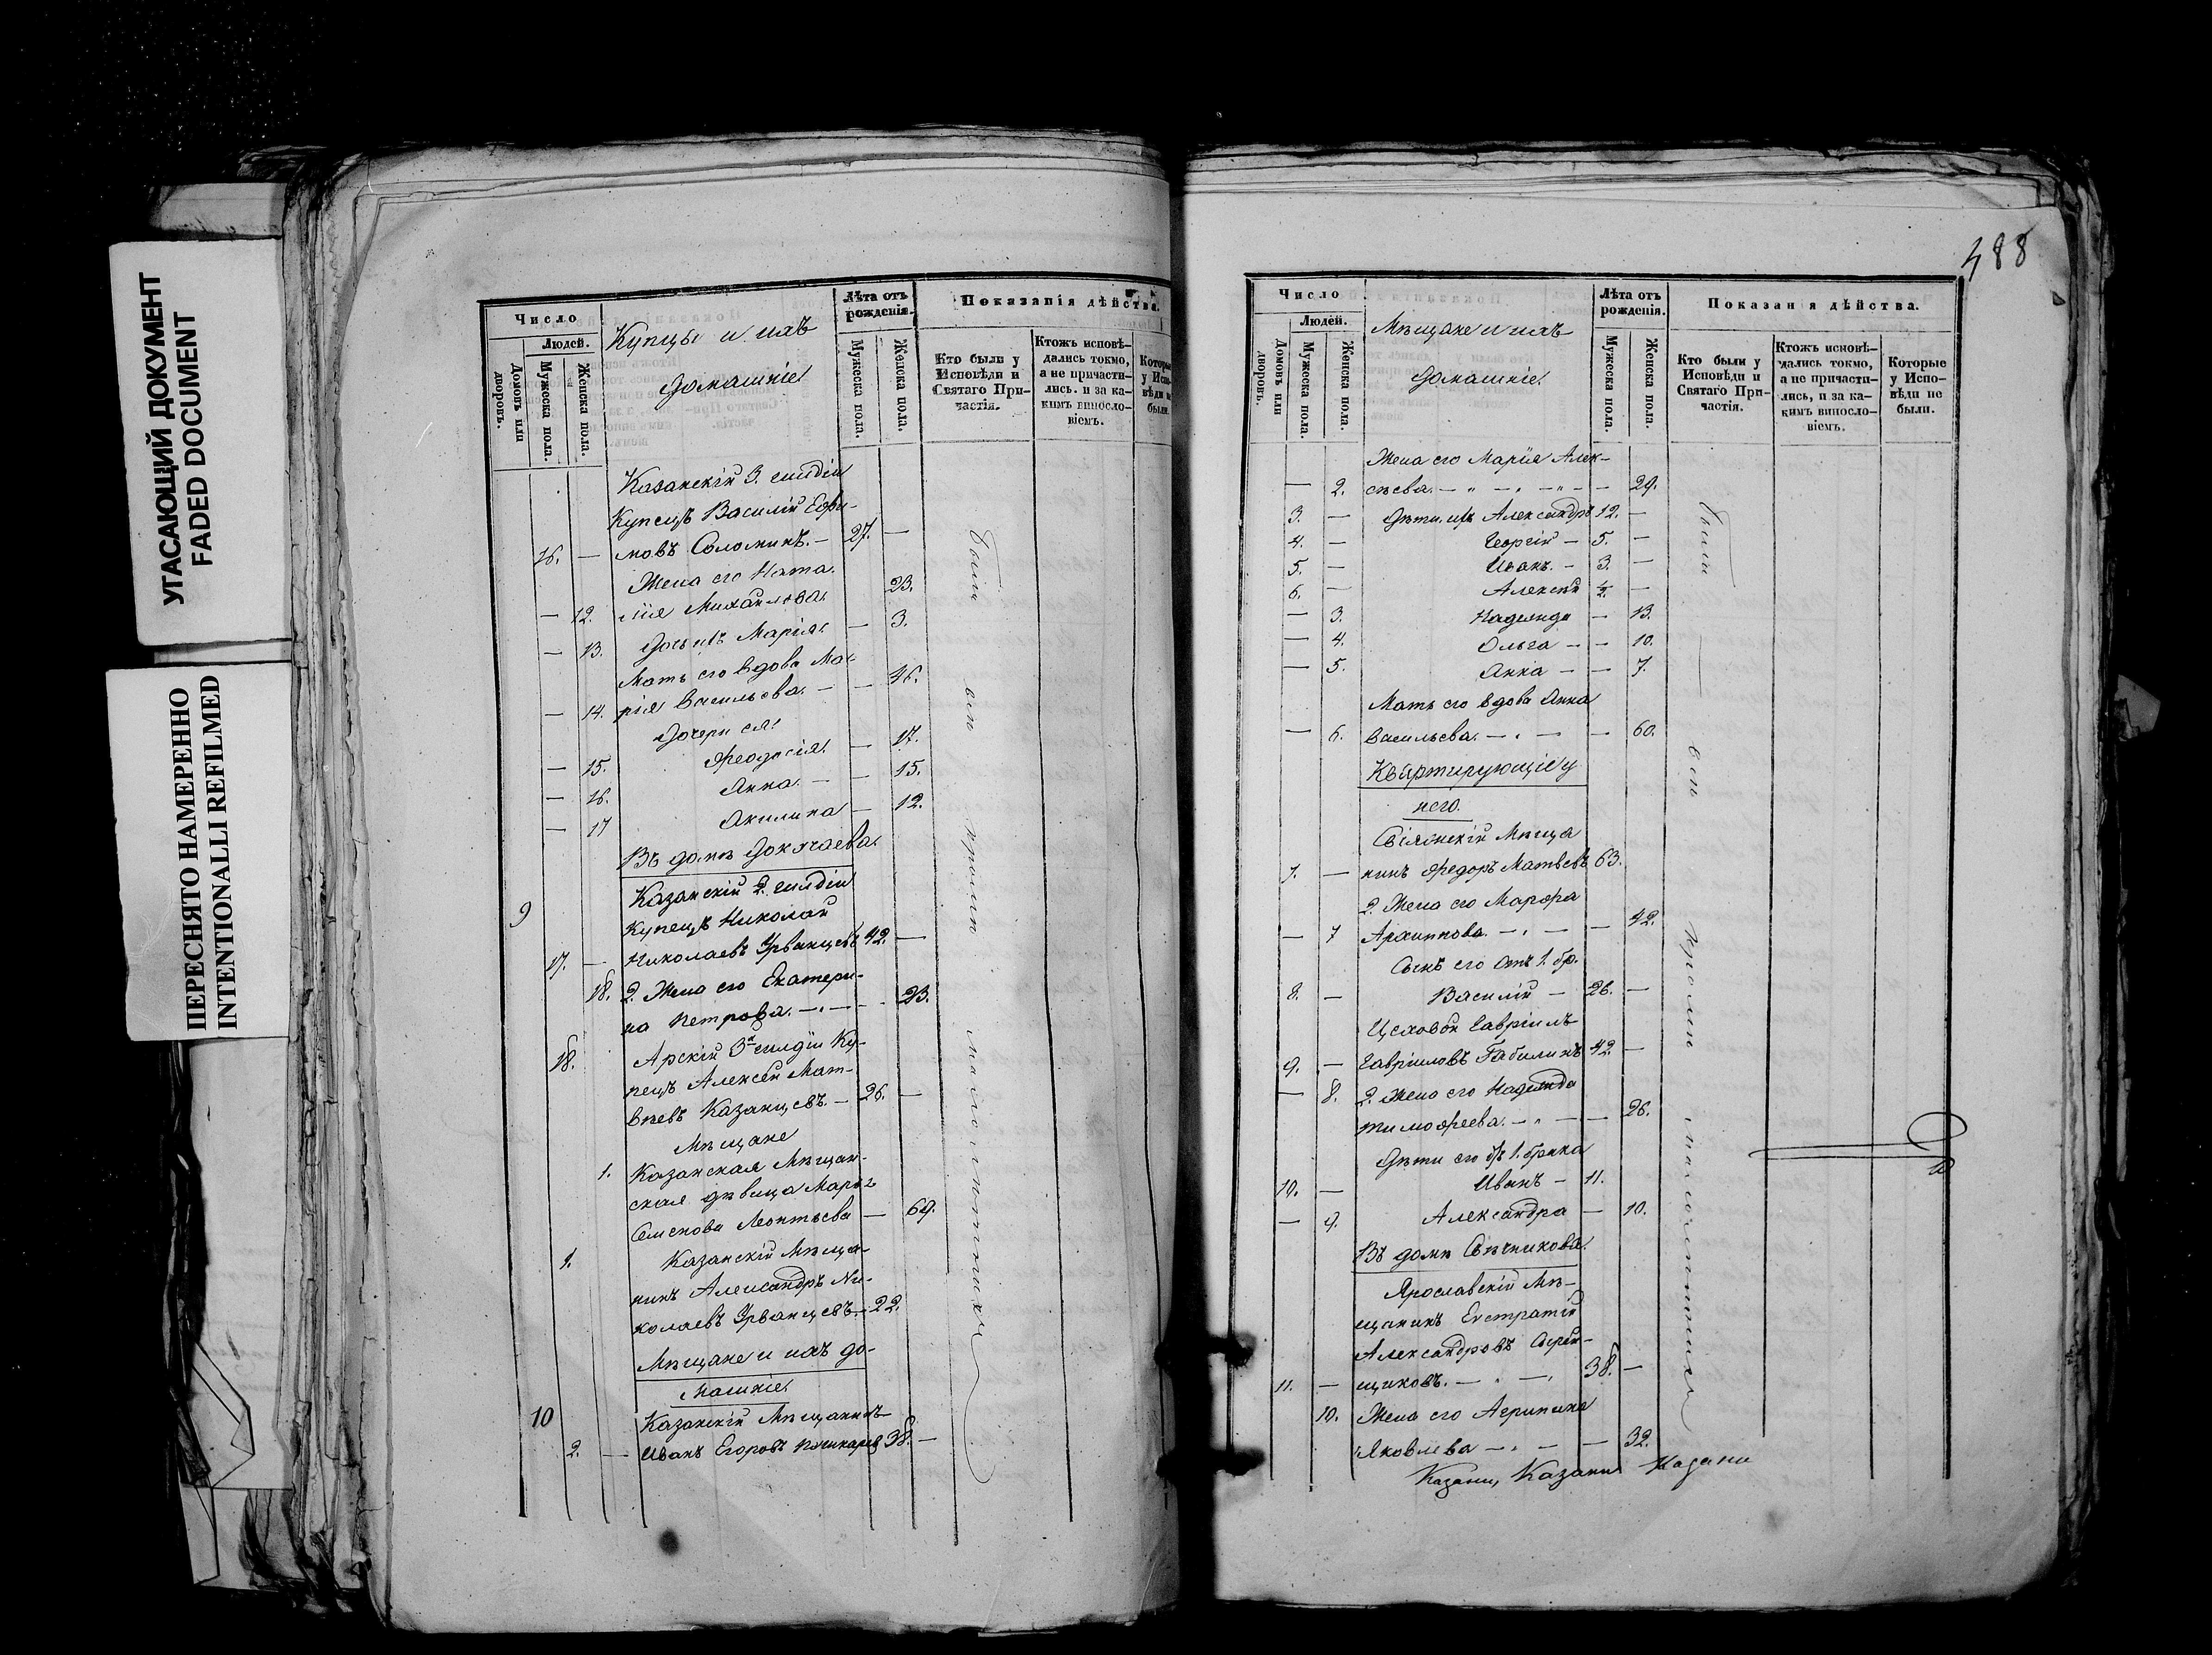 УГАСАЮЩИЙ ДОКУМЕНТ
FADED DOCUMENT
ПЕРЕСНЯТО НАМЕРЕННО
INTENTIONALLI REFILMED
Число
Людей.
Домовъ или дворовъ.
Мужеска пола.
Женска пола.
Купцы и ихъ
домашніе
Лѣта отъ рожденія.
Мужеска пола.
Женска пола.
Показанія дѣйства.
Кто были у Исповѣди и Святаго Причастія.
Ктожъ исповѣдались токмо, а не причастились. и за какимъ винословіемъ.
Казанскій 3. гильдіи
Купецъ Василій Ефи-
16. — мовъ Соломинъ. — 27. —
Жена его Ната-
— 12. лія Михайлова. 23.
— 13. Дочь ихъ Марія. — 3.
Мать его вдова Ма-
— 14. рія Васильева. — — 46.
Дочери ея:
— 15. Феодосія. — 17.
— 16. Анна. — — 15.
— 17 Акилина — 12.
Въ домѣ Докучаева.
Казанскій 2. гильдіи
9 Купецъ Николай
17. — Николаевъ Урванцевъ 42. —
18. 2. Жена его Екатери-
на Петрова. — 23.
18. Арскій 3й гильдіи Ку-
пецъ Алексѣй Мат-
вѣевъ Казанцевъ. — 26. —
Мѣщане
1. Казанская Мѣщан-
ская дѣвица
Семенова Леонтьева — 69.
1. Казанскій Мѣща-
нинъ Александръ Ни-
колаевъ Урванцевъ. — 22.
Мѣщане и ихъ до-
машніе.
10 Казанскій Мѣщанинъ
2. — Иванъ Егоровъ 38. —
были
вси
кромѣ
малолѣтнихъ
488
Число
Людей.
Домовъ или дворовъ.
Мужеска пола.
Женска пола.
Мѣщане и ихъ
домашніе.
Лѣта отъ рожденія.
Мужеска пола.
Женска пола.
Показан я дѣйства.
Кто были у Исповѣди и Святаго Причастія.
Ктожъ исповѣдались токмо, а не причастились, и за какимъ винословіемъ.
Которые у Исповѣди не были.
Жена его Марія Алек-
— 2. сѣева. — 29.
3. — Дѣти ихъ Александръ 12. —
4. — Георгій — 5. —
5. — Иванъ. — 3. —
6. — Алексѣй ½. —
— 3. Надежда — 13.
— 4. Ольга — — 10.
— 5. Анна — — 7.
Мать его вдова Анна
— 6. Васильева. — — 60.
Квартирующіе у
него.
Свіяжскій Мѣща
7. — нинъ Федоръ Матвѣевъ 63.
2. Жена его Марфа
— 7 Архиппова. — — 42.
Сынъ его отъ 1. бр.
8. — Василій — 26. —
Цеховой Гавріилъ
9. — Гавріиловъ 42. —
— 8. 2. Жена его Надежда
Тимофеева. — 26.
Дѣти его отъ 1. брака
10. — Иванъ — 11.
— 9. Александра — 10.
Въ домѣ Свѣчникова.
Ярославскій Мѣ-
щанинъ Евстратій
Александровъ
11. — щиковъ. — 38. —
10. Жена его Агрипина
Яковлева — — 32.
Казани, Казани Казани
были
вси
кромѣ
малолѣтнихъ